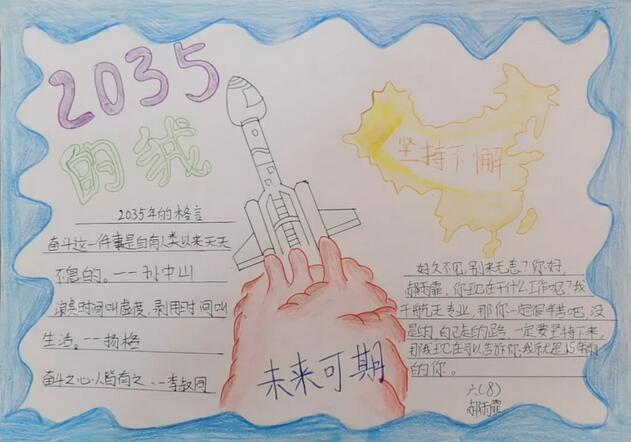 2035
的我
2035年的格言
奋斗这一件事是自有人类以来天天
不息的。——孙中山
浪费时间叫虚度，剥用时间叫
生活。——扬格
奋斗之心人皆有之。——李叔同
坚持不懈
未来可期
好久不见，别来无恙？你好，
你现在干什么工作呢？我
干航天专业，那你一定很辛苦吧，没
是的，自己走的路，一定要坚持下来，
那我现在可以告诉你，我就是15年前
的你。
六（8）